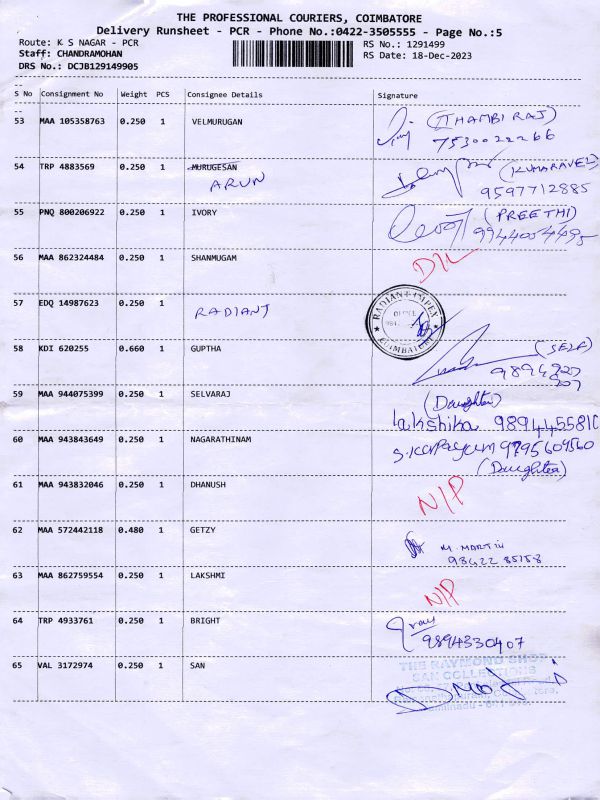 THE PROFESSIONAL COURIERS, COIMBATORE
Delivery Runsheet - PCR - Phone No.:0422-3505555 - Page No.:5
Route: K S NAGAR - PCR RS No.: 1291499
Staff: CHANDRAMOHAN RS Date: 18-Dec-2023
DRS No.: DCJB129149905
S No Consignment No Weight PCS Consignee Details Signature
53 MAA 105358763 0.250 1 VELMURUGAN (THAMBI RAJ)
7530022266
54 TRP 4883569 0.250 1 MURUGESAN (KUMARAVEL)
ARUN 9597712885
55 PNQ 800206922 0.250 1 IVORY (PREETHI)
56 MAA 862324484 0.250 1 SHANMUGAM D/L
57 EDQ 14987623 0.250 1 RADIANT
RADIANT IMPEX
COIMBATORE
58 KDI 620255 0.660 1 GUPTHA (SELF)
59 MAA 944075399 0.250 1 SELVARAJ (Daughter)
lakshika 9894455810
60 MAA 943843649 0.250 1 NAGARATHINAM 9795609560
(Daughter)
61 MAA 943832046 0.250 1 DHANUSH N/P
62 MAA 572442118 0.480 1 GETZY M. MARTIN
98422 85158
63 MAA 862759554 0.250 1 LAKSHMI N/P
64 TRP 4933761 0.250 1 BRIGHT
9894330407
65 VAL 3172974 0.250 1 SAN
THE RAYMOND SHOP
SAN COLLECTIONS